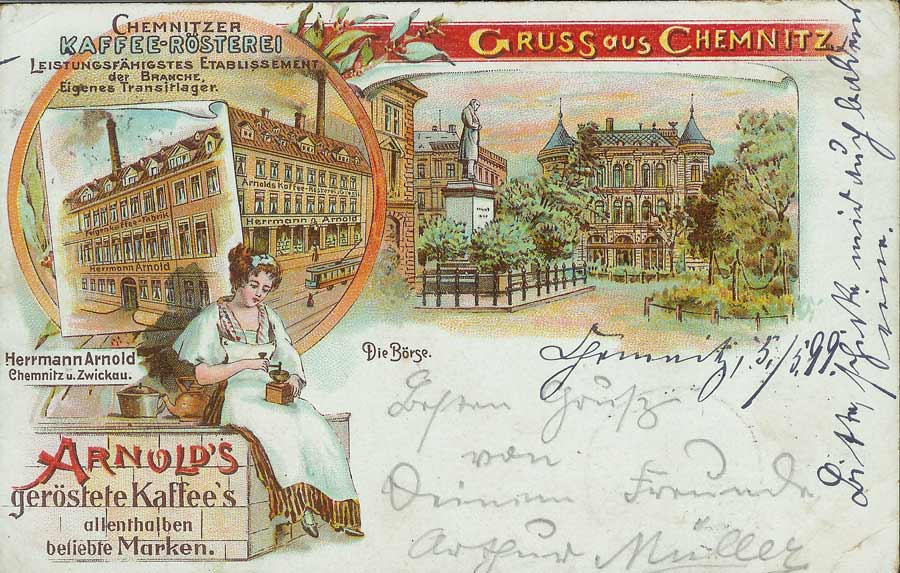 CHEMNITZER
KAFFEE-RÖSTEREI
LEISTUNGSFÄHIGSTES ETABLISSEMENT
der BRANCHE,
Eigenes Transitlager.
GRUSS aus CHEMNITZ
Arnolds Kaffee-Rösterei
Herrmann Arnold
Feigenkaffee-Fabrik
Herrmann Arnold
Herrmann Arnold
Chemnitz u. Zwickau.
Die Börse.
ARNOLD'S
geröstete Kaffee's
allenthalben
beliebte Marken.
Chemnitz, 5./5.99.
Besten Gruß
von
Deinem Freunde
Arthur Müller
Bitte, schicke mir auch